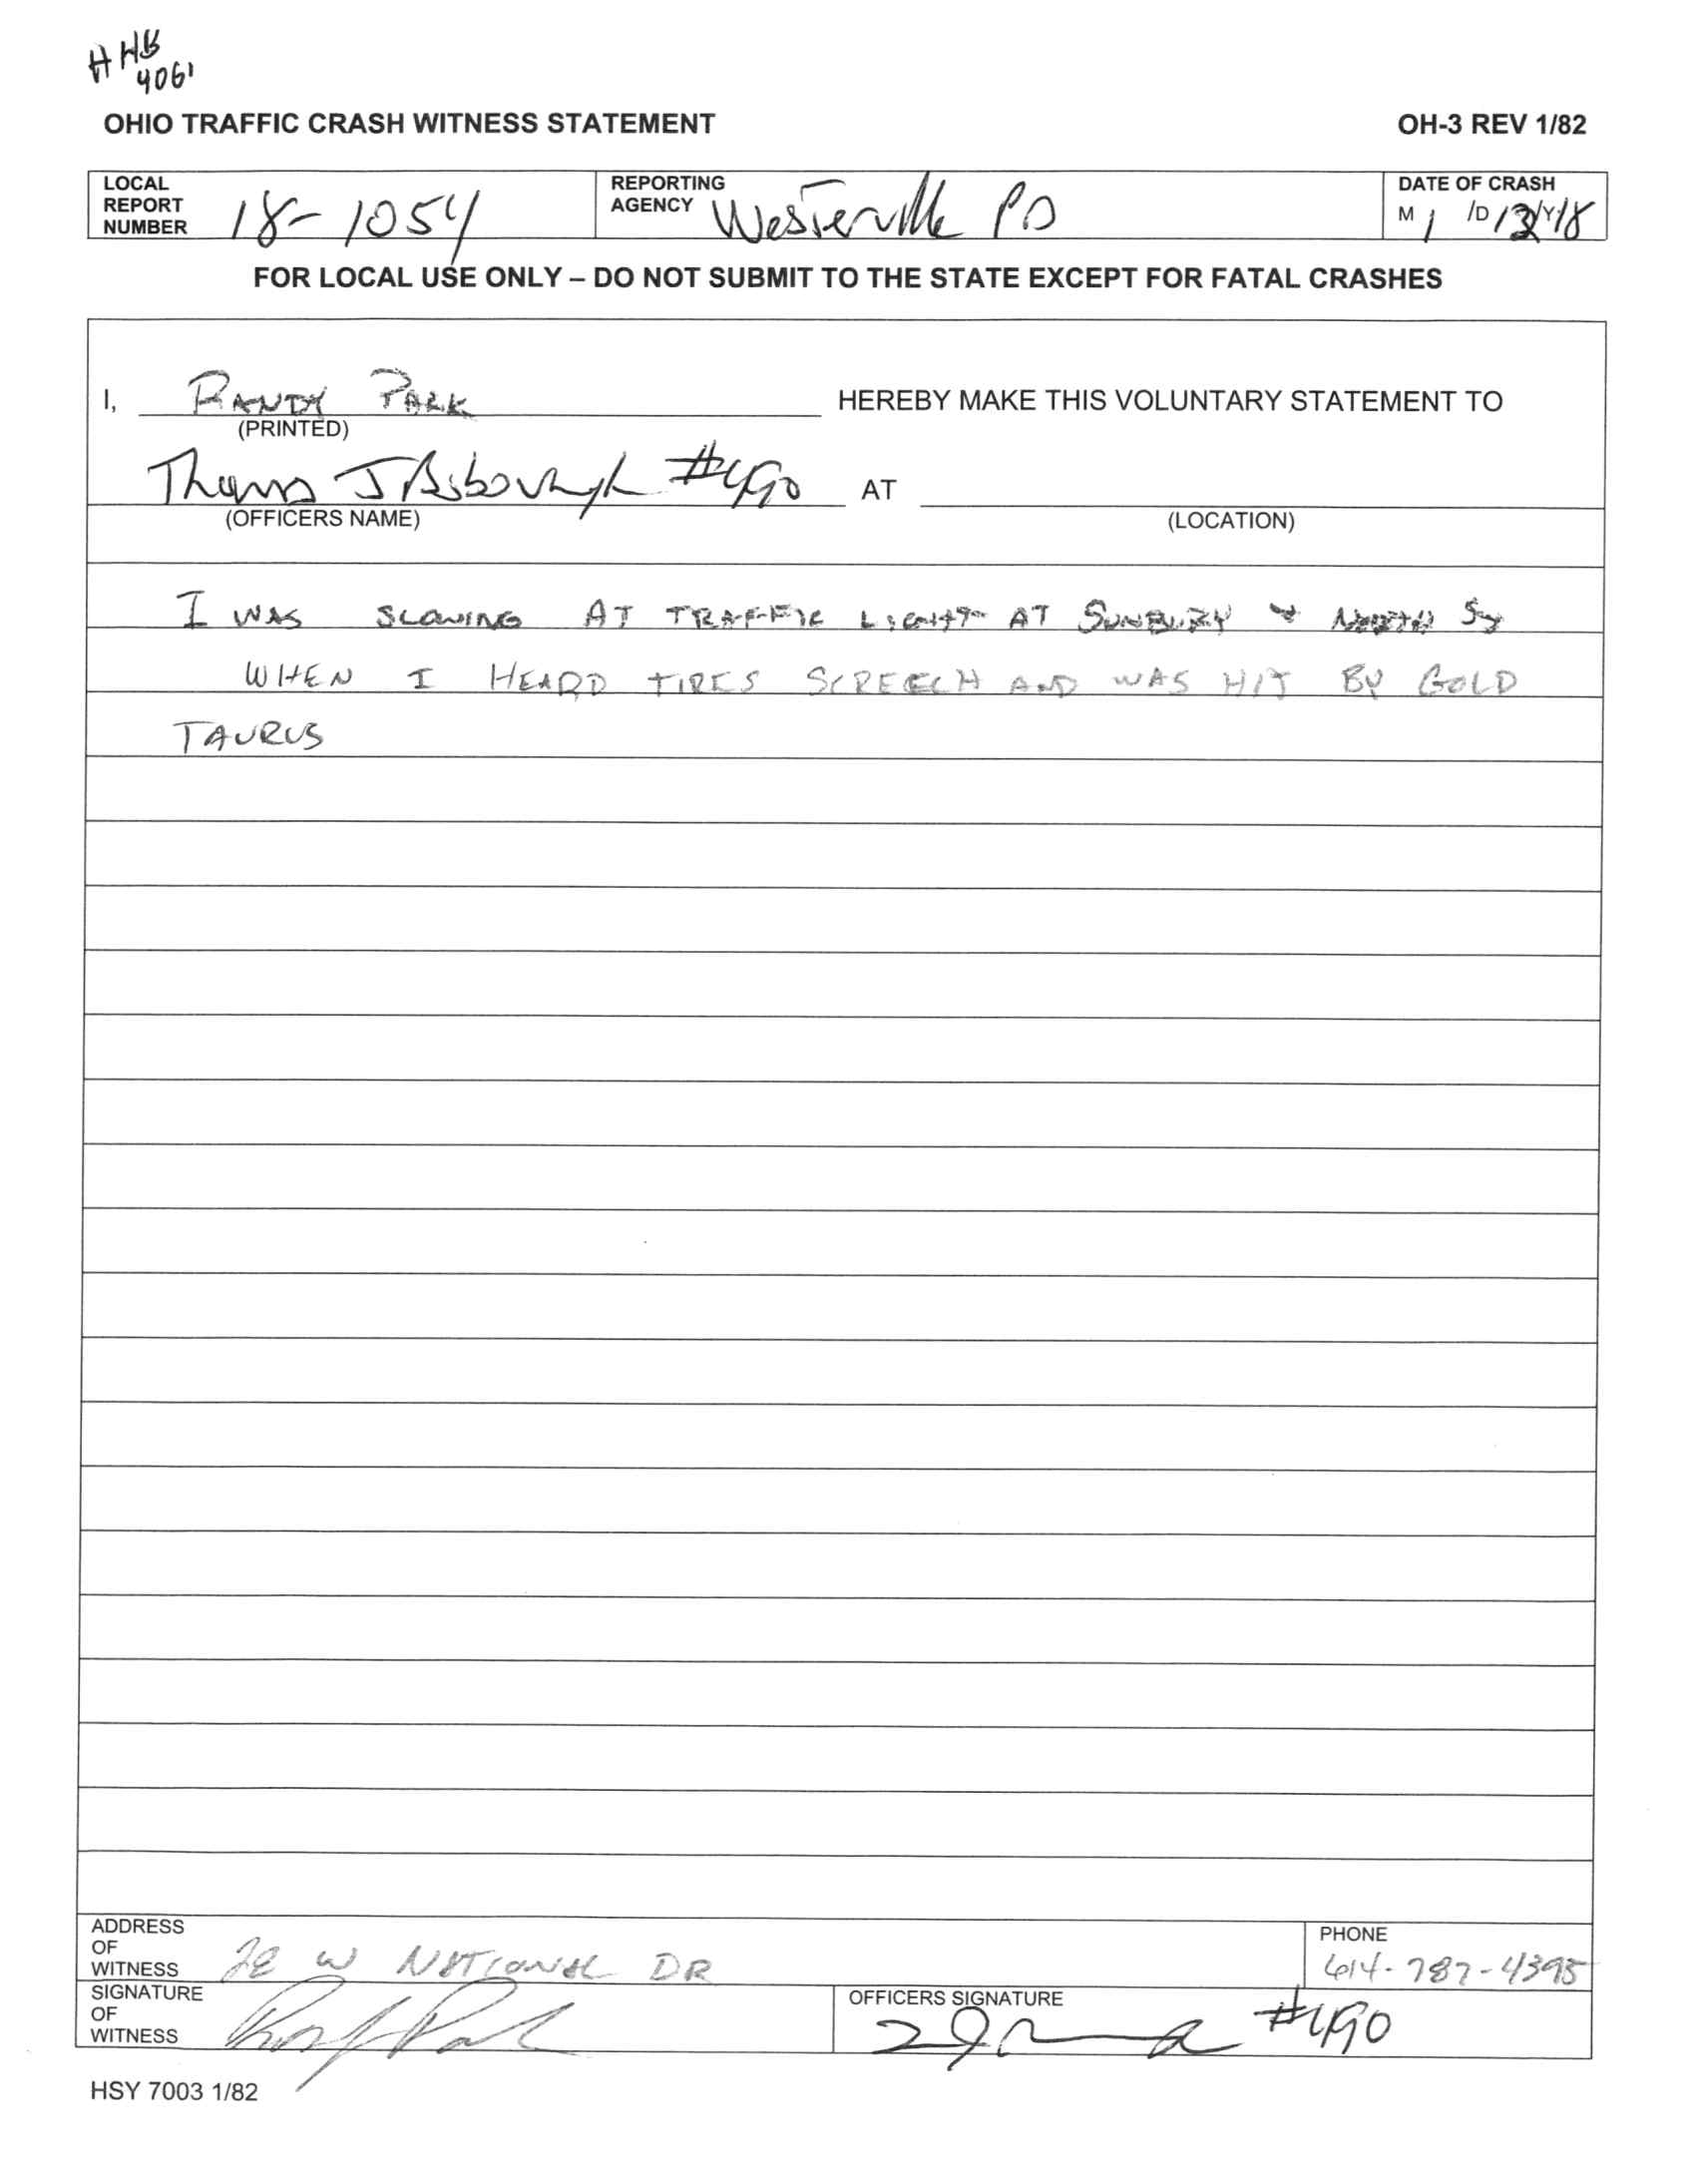 HHB
4061
OHIO TRAFFIC CRASH WITNESS STATEMENT OH-3 REV 1/82
LOCAL REPORT NUMBER 18-1054 REPORTING AGENCY Westerville PD DATE OF CRASH M 1 /D 12 /Y 18
FOR LOCAL USE ONLY – DO NOT SUBMIT TO THE STATE EXCEPT FOR FATAL CRASHES
I, RANDY PARK HEREBY MAKE THIS VOLUNTARY STATEMENT TO
(PRINTED)
Thomas J Asbourgh #490 AT
(OFFICERS NAME) (LOCATION)
I WAS SLOWING AT TRAFFIC LIGHT AT SUNBURY & NORTH ST
WHEN I HEARD TIRES SCREECH AND WAS HIT BY GOLD
TAURUS
ADDRESS OF WITNESS W NATIONAL DR PHONE 614-787-4395
SIGNATURE OF WITNESS OFFICERS SIGNATURE #490
HSY 7003 1/82